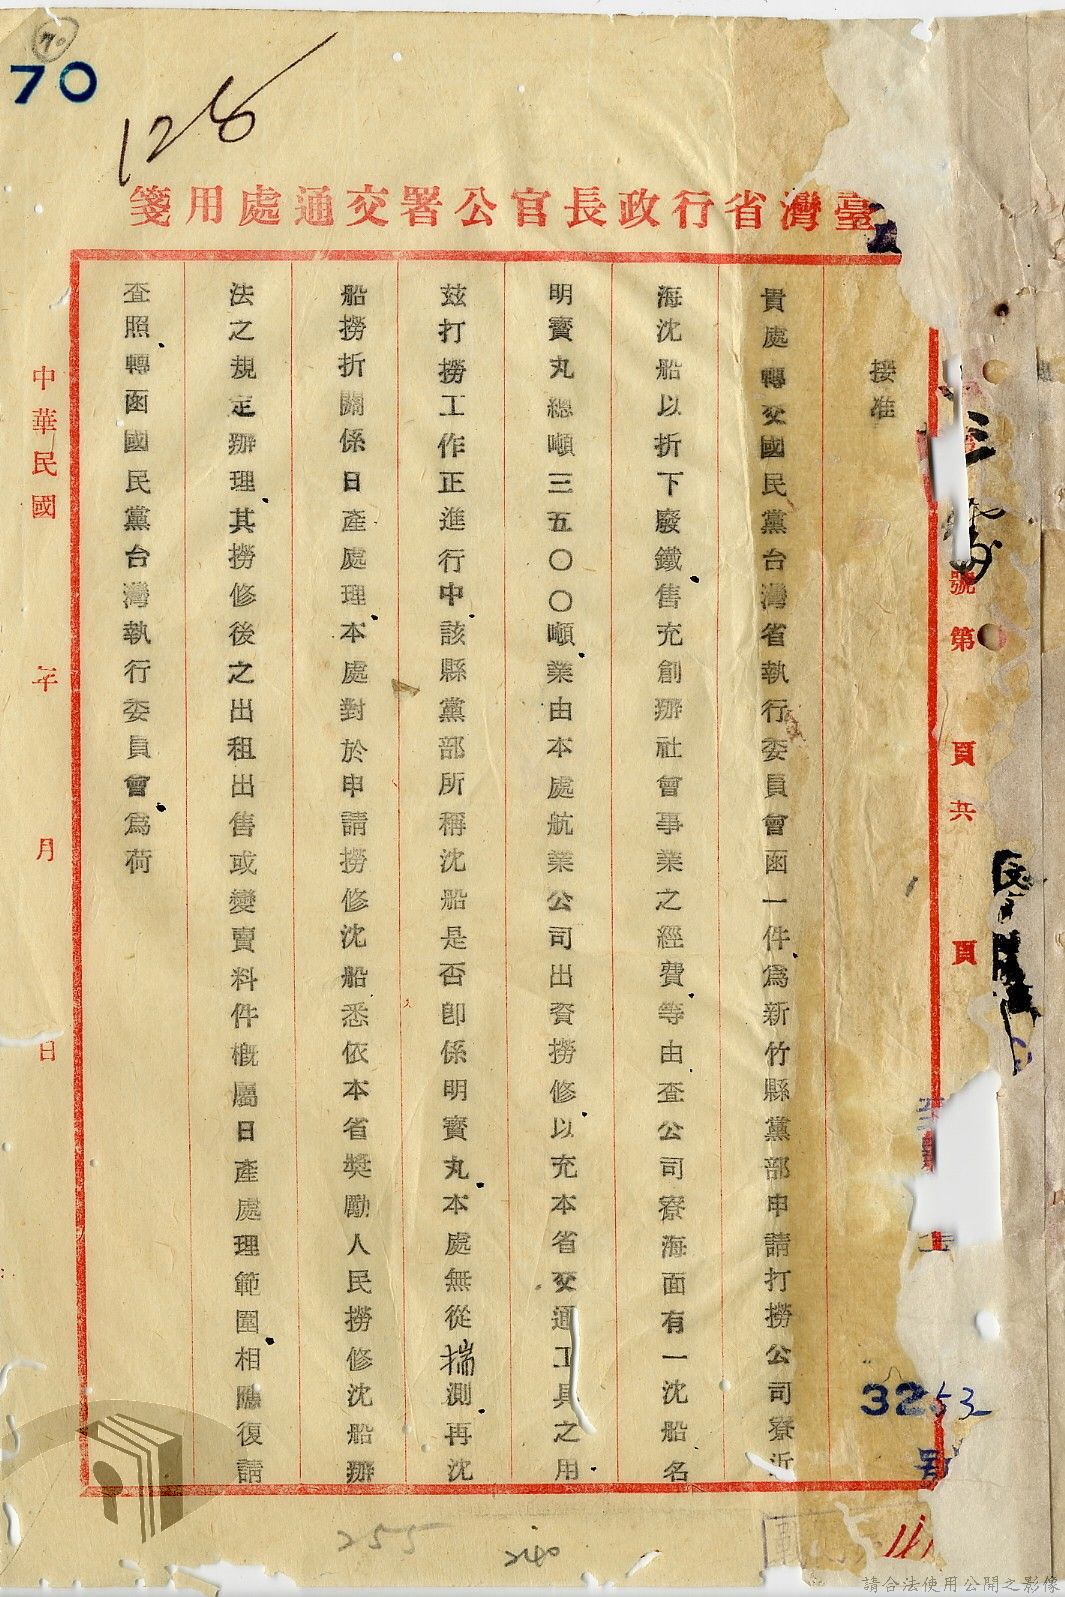 70
70
128
臺灣省行政長官公署交通處用箋
接准
貴處轉交國民黨台灣省執行委員會函一件為新竹縣黨部申請打撈公司寮近
海沈船以折下廢鐵售充創辦社會事業之經費等由查公司寮海面有一沈船名
明寶丸總噸三五〇〇噸業由本處航業公司出資撈修以充本省交通工具之用
茲打撈工作正進行中該縣黨部所稱沈船是否卽係明寶丸本處無從揣測再沈
船撈折關係日產處理本處對於申請撈修沈船悉依本省獎勵人民撈修沈船辦
法之規定辦理其撈修後之出租出售或變賣料件槪屬日產處理範圍相應復請
查照轉函國民黨台灣執行委員會為荷
中華民國 年 月 日
號第 頁共 頁
3253
號
255
240
請合法使用公開之影像